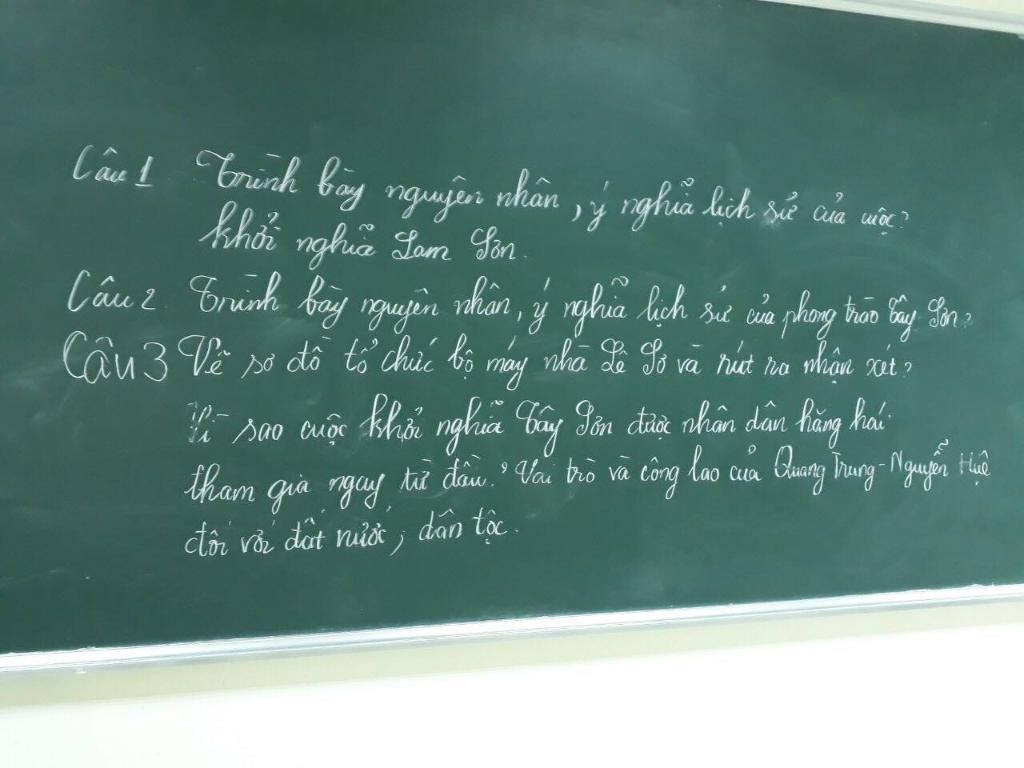 Câu 1 Trình bày nguyên nhân, ý nghĩa lịch sử của cuộc?
khởi nghĩa Lam Sơn.
Câu 2. Trình bày nguyên nhân, ý nghĩa lịch sử của phong trào Tây Sơn?
Câu 3 Vẽ sơ đồ tổ chức bộ máy nhà Lê Sơ và rút ra nhận xét?
Vì sao cuộc khởi nghĩa Tây Sơn được nhân dân hăng hái
tham gia ngay từ đầu? Vai trò và công lao của Quang Trung - Nguyễn Huệ
đối với đất nước, dân tộc.